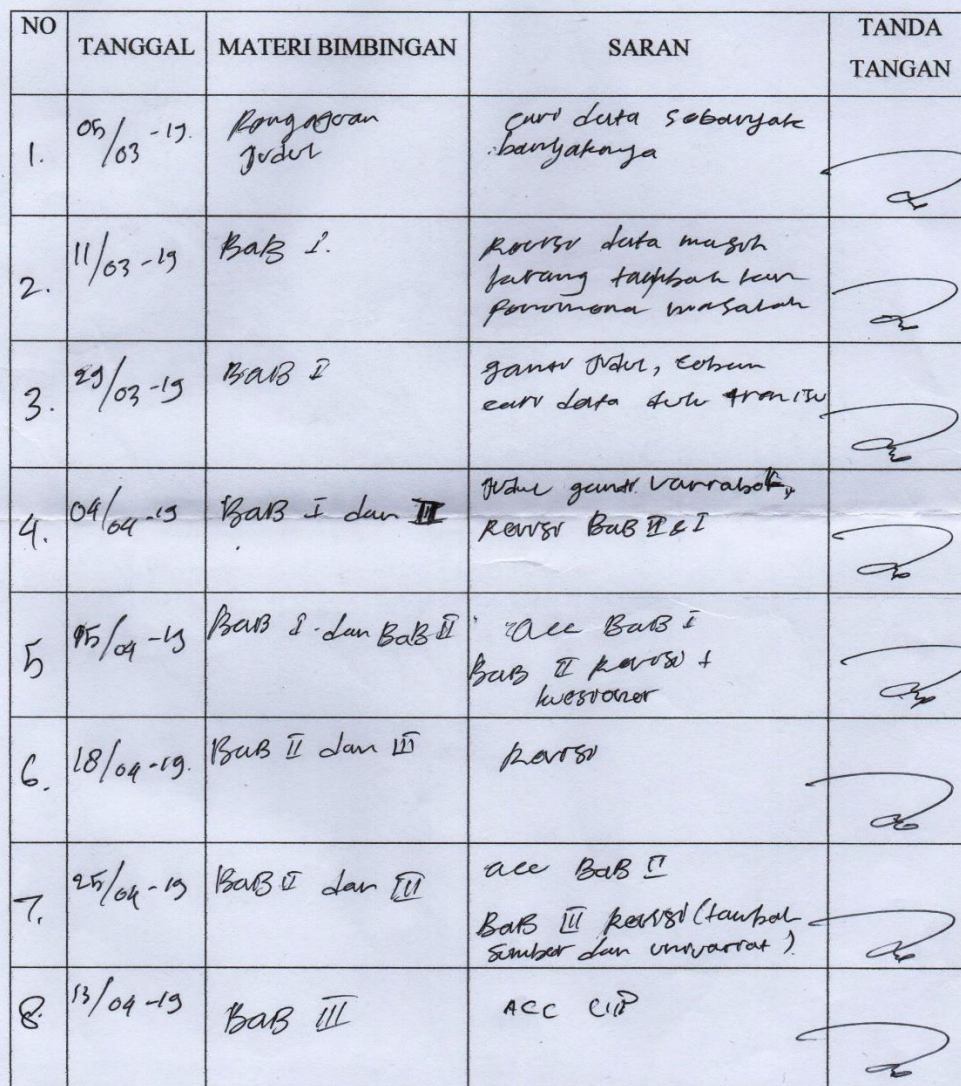 NO TANGGAL MATERI BIMBINGAN SARAN TANDA TANGAN
1. 05/03-19. Pengajuan cari data sebanyak
Judul banyaknya
2. 11/03-19 BaB I. Revisi data masih
kurang tambah kan
Fenomena masalah
3. 29/03-19 BaB I ganti Judul,
cari data dulu
4. 04/04-19 BaB I dan II Judul ganti Variabel,
Revisi BaB II & I
5 15/04-19 BaB I dan BaB II acc BaB I
BaB II Revisi +
kuesioner
6. 18/04-19. BaB II dan III Revisi
7. 25/04-19 BaB II dan III acc BaB II
BaB III Revisi (tambah
sumber dan univariat)
8. 13/04-19 BaB III ACC